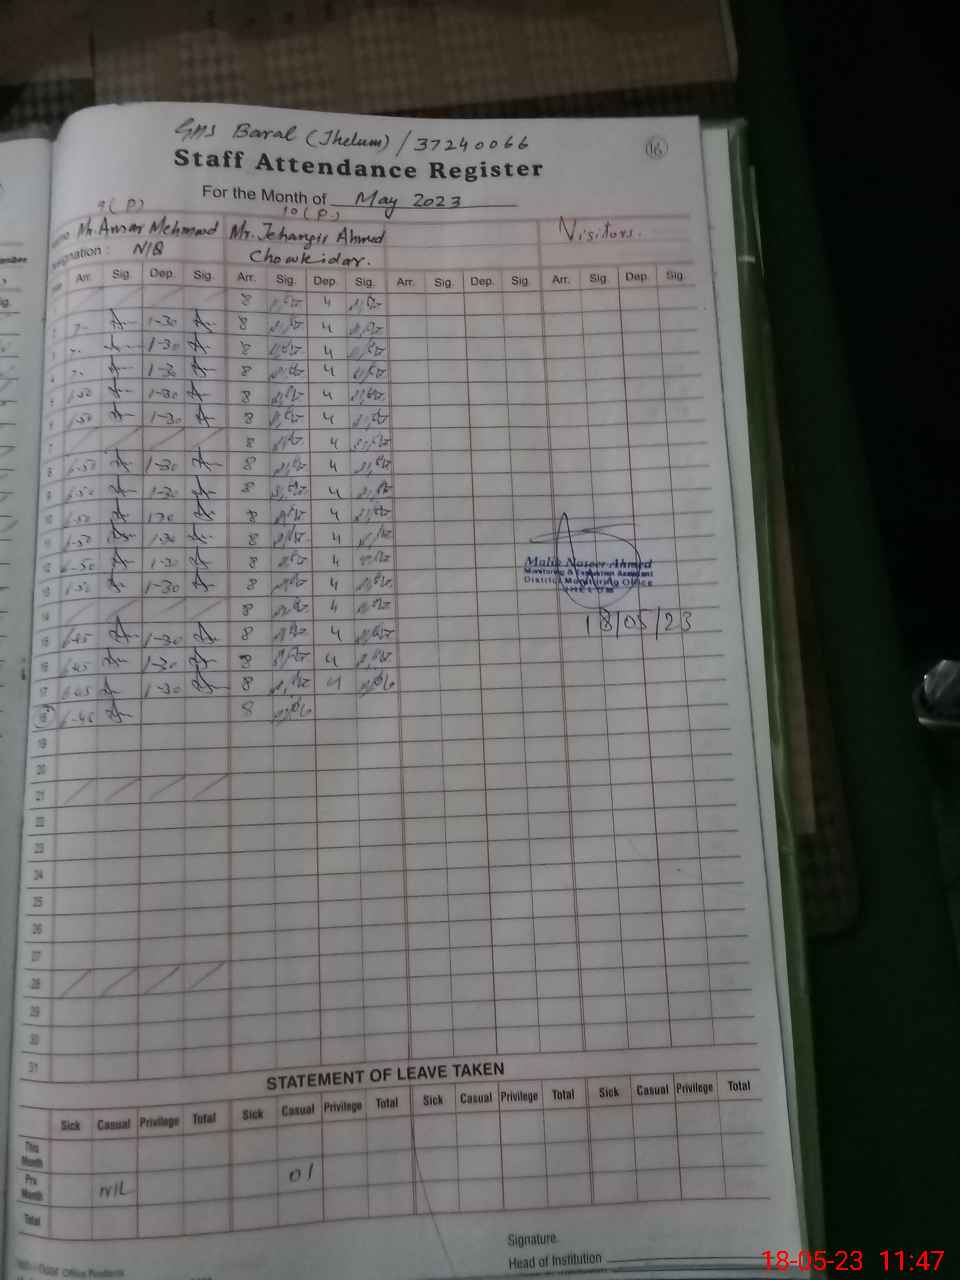 GMS Baral (Jhelum) / 37240066
16
Staff Attendance Register
For the Month of May 2023
9 (P) 10 (P)
Mr. Ansar Mehmood Mr. Jehangir Ahmed Visitors.
Designation : N/Q Chowkidar.
Arr. Sig. Dep. Sig. Arr. Sig. Dep. Sig. Arr. Sig. Dep. Sig. Arr. Sig. Dep. Sig.
8 4
2 7- 1-30 8 4
3 7- 1-30 8 4
4 7- 1-30 8 4
1-30 8 4
1-30 8 4
7 8 4
8 6-50 1-30 8 4
9 6-50 1-30 8 4
10 6-50 1-30 8 4
11 6-50 1-30 8 4
12 6-50 1-30 8 4
13 6-50 1-30 8 4
14 8 4
15 6-45 1-30 8 4
16 6-45 1-30 8 4
17 6-45 1-30 8 4
18 6-45 8
Malik Naseer Ahmed
Monitoring & Evaluation Assistant
District Monitoring Office
JHELUM
18/05/23
19
20
21
22
23
24
25
26
27
28
29
30
31
STATEMENT OF LEAVE TAKEN
Sick Casual Privilege Total Sick Casual Privilege Total Sick Casual Privilege Total Sick Casual Privilege Total
This Month
Prv Month NIL 01
Total
Signature.
Head of Institution
Office Products
18-05-23 11:47